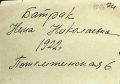 Батрак
Нина Николаевна
1922
Потелтенская 6